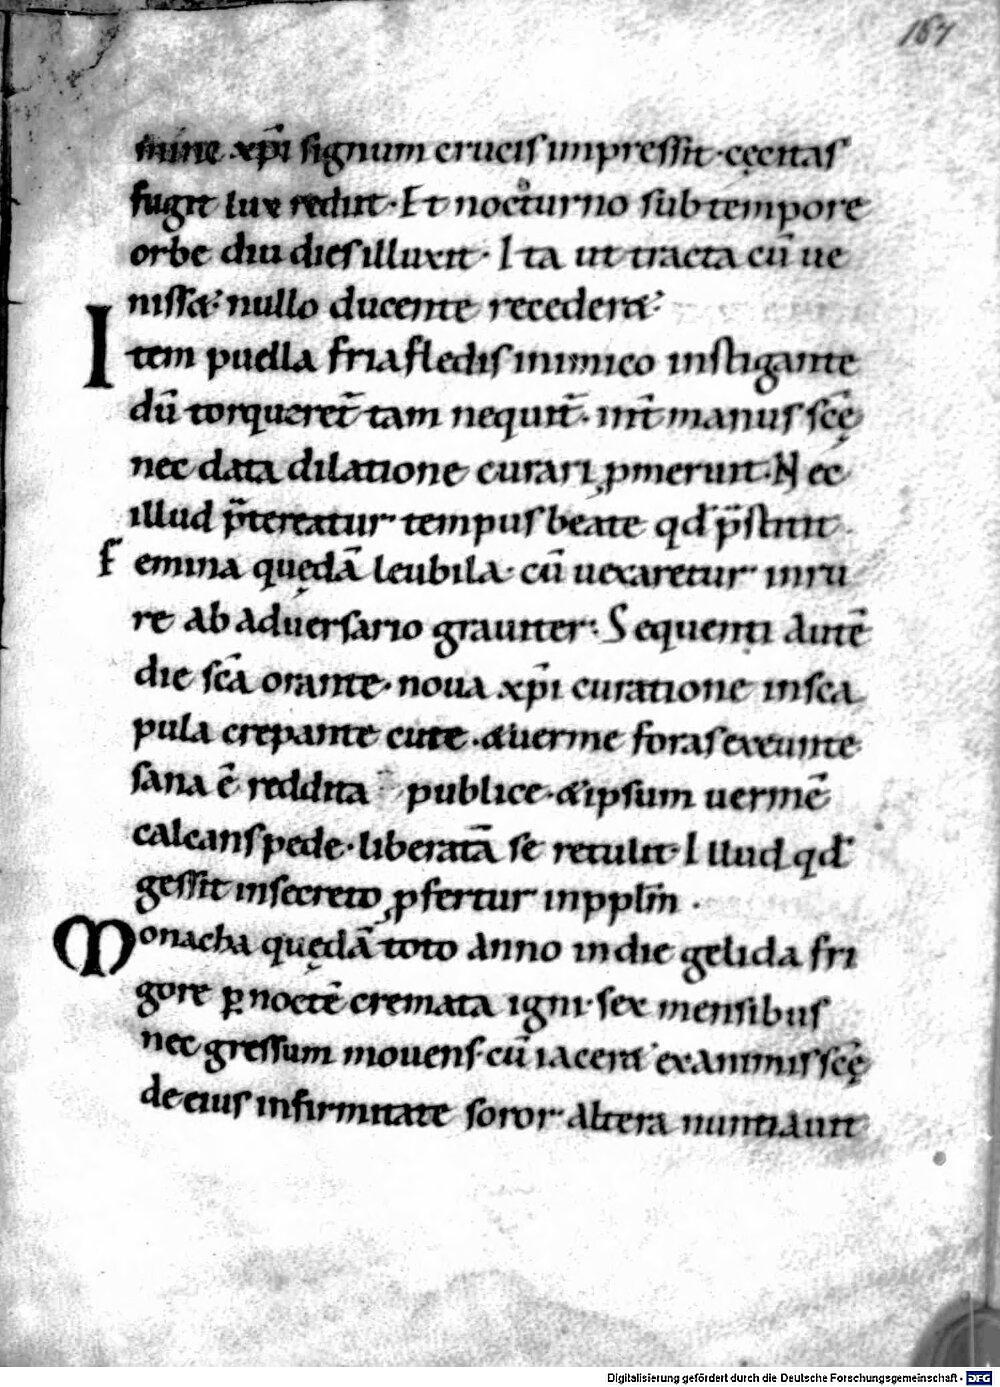 167
mine xp̄i signum crucis impressit · cęcitas
fugit lux rediit · Et nocturno sub tempore
orbe diu dies illuxit · Ita ut tracta cū ue
nisset · nullo ducente recederet ·
Item puella friafledis inimico instigante
dū torqueret̄ tam nequit̄ · int̄ manus scę̄
nec data dilatione curari ꝓmeruit · Nec
illud p̄tereatur tempus beate qd̄ p̄stitit ·
Femina quędā leubila · cū uexaretur in ru
re ab adversario grauiter · Sequenti autē
die scā orante · noua xp̄i curatione in sca
pula crepante cute · & uerme foras exeunte
sana ē reddita publice · & ipsum uermē
calcans pede · liberatā se retulit · Illud qd̄
gessit in secreto ꝓfertur in pplm̄ ·
Monacha quędā toto anno in die gelida fri
gore ꝑ noctē cremata igni · sex mensibus
nec gressum mouens · cū iaceret exanimis scę̄
de eius infirmitate soror altera nuntiauit
Digitalisierung gefördert durch die Deutsche Forschungsgemeinschaft - DFG